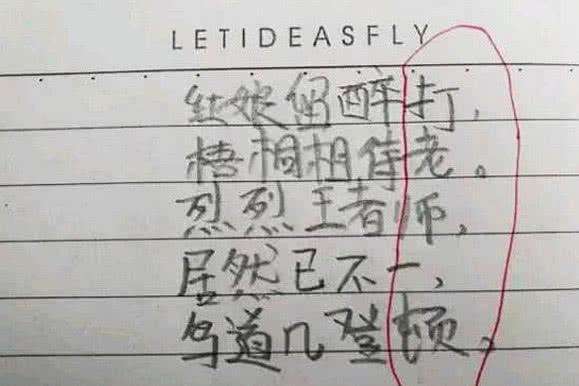 LETIDEASFLY
红娘留醉打,
梧桐相待老。
烈烈王者师,
居然已不一,
鸟道几登顿。